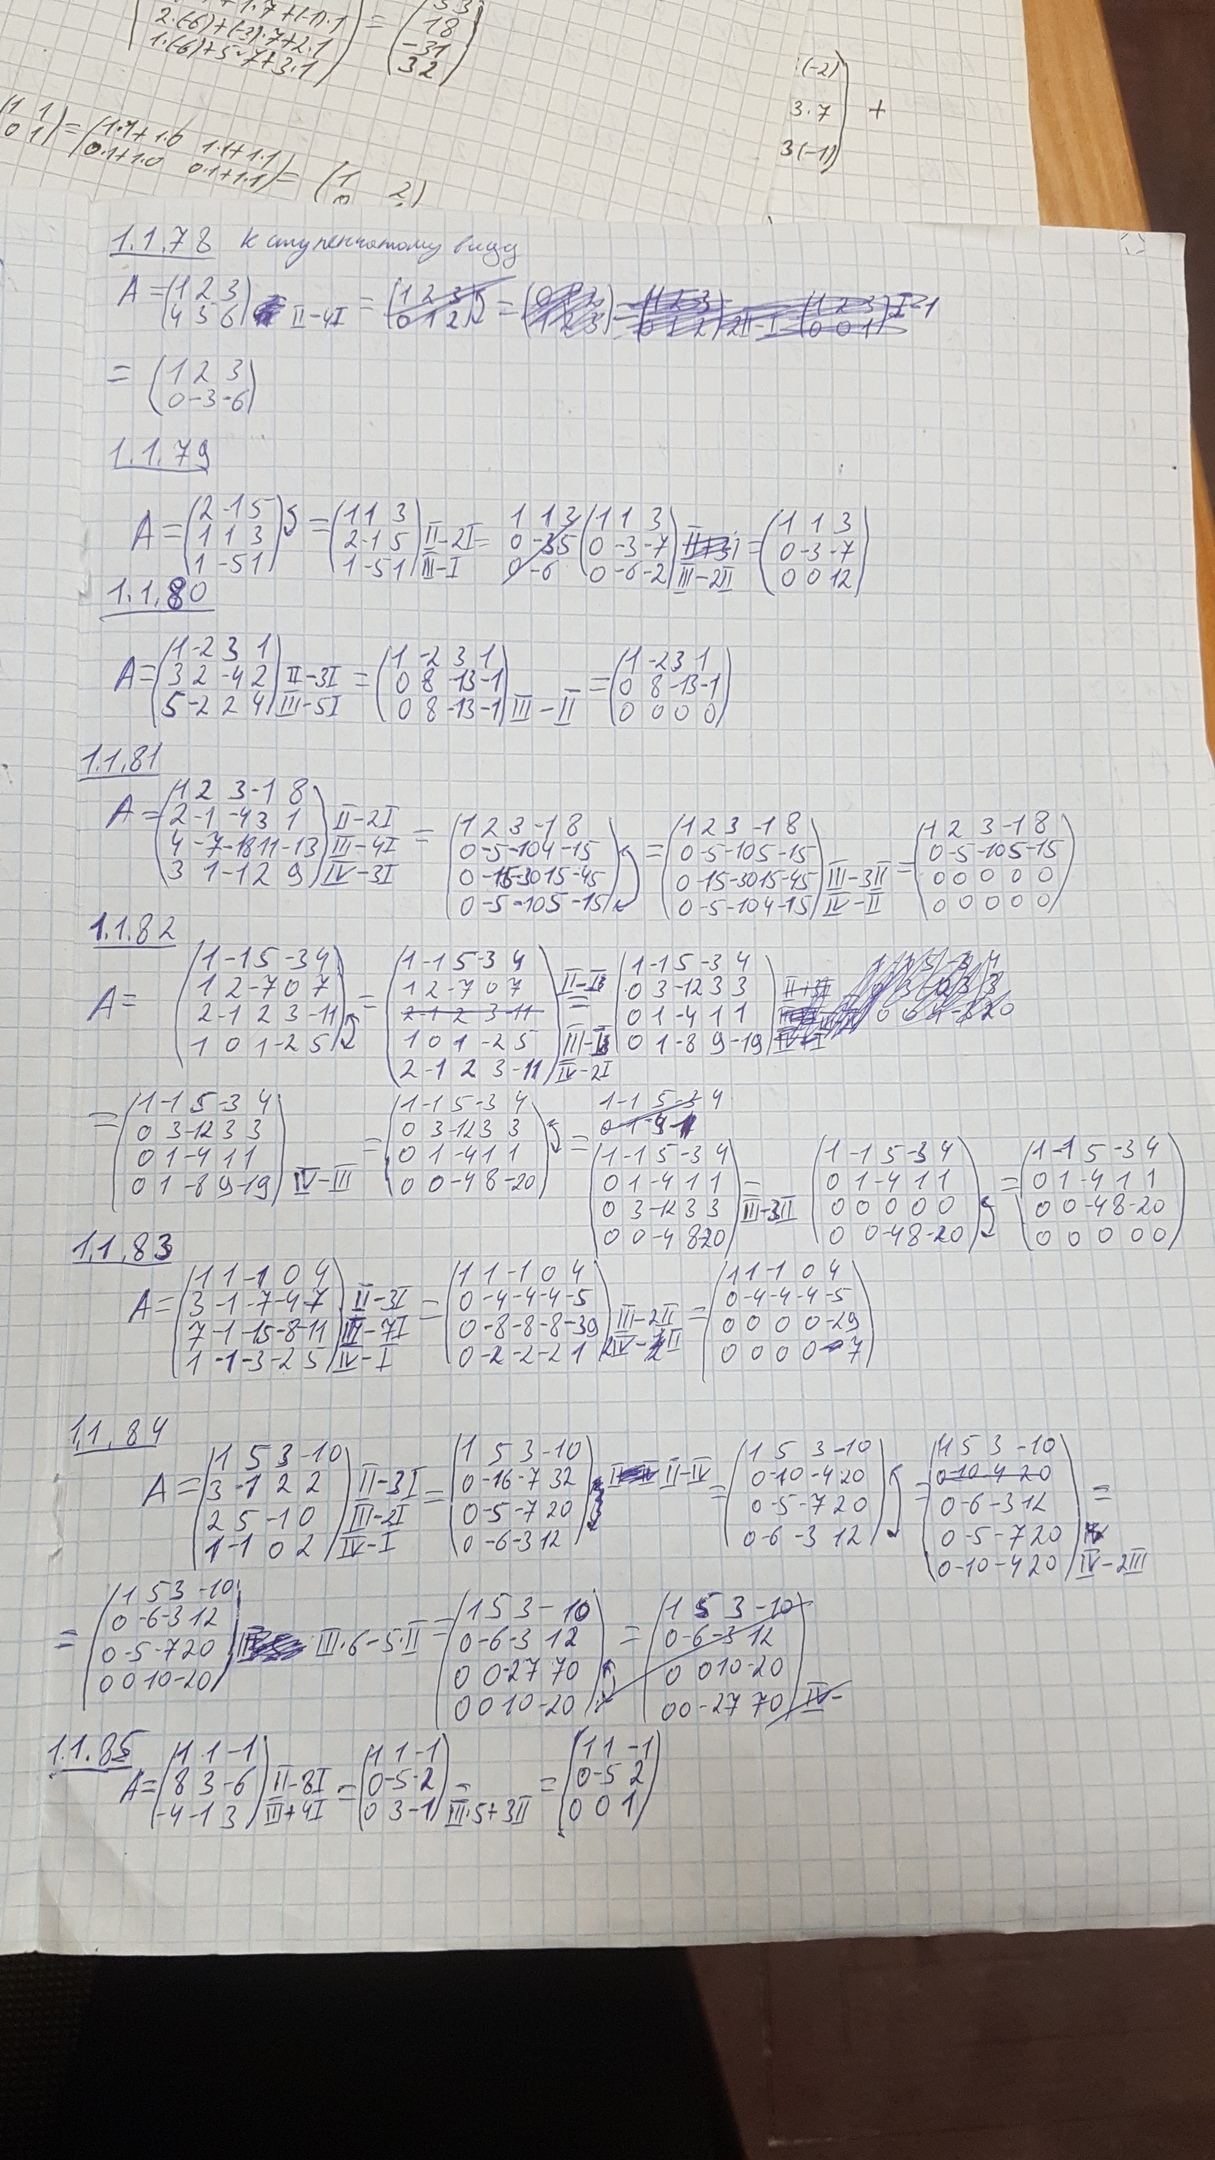 2·(-6)+(-3)·7+2·1
1·(-6)+5·7+3·1
18
-31
32
(-2)
3·7 +
3(-1)
1 1
0 1 = 1·1+1·0 1·1+1·1
0·1+1·0 0·1+1·1 = (1 2
1.1.78 к ступенчатому виду
A = (1 2 3
4 5 6) II-4I = (1 2 3
0 1 2)
= (1 2 3
0 -3 -6)
1.1.79
A = (2 -1 5
1 1 3
1 -5 1) = (1 1 3
2 -1 5
1 -5 1) II-2I
III-I = (1 1 3
0 -3 -7
0 -6 -2) III-2II = (1 1 3
0 -3 -7
0 0 12)
1.1.80
A = (1 -2 3 1
3 2 -4 2
5 -2 2 4) II-3I
III-5I = (1 -2 3 1
0 8 -13 -1
0 8 -13 -1) III-II = (1 -2 3 1
0 8 -13 -1
0 0 0 0)
1.1.81
A = (1 2 3 -1 8
2 -1 -4 3 1
4 -7 -18 11 -13
3 1 -1 2 9) II-2I
III-4I
IV-3I = (1 2 3 -1 8
0 -5 -10 4 -15
0 -15 -30 15 -45
0 -5 -10 5 -15) = (1 2 3 -1 8
0 -5 -10 5 -15
0 -15 -30 15 -45
0 -5 -10 4 -15) III-3II
IV-II = (1 2 3 -1 8
0 -5 -10 5 -15
0 0 0 0 0
0 0 0 0 0)
1.1.82
A = (1 -1 5 -3 4
1 2 -7 0 7
2 -1 2 3 -11
1 0 1 -2 5) = (1 -1 5 -3 4
1 2 -7 0 7
2 -1 2 3 -11
1 0 1 -2 5
2 -1 2 3 -11) II-I
III-I
IV-2I = (1 -1 5 -3 4
0 3 -12 3 3
0 1 -4 1 1
0 1 -8 9 -19)
= (1 -1 5 -3 4
0 3 -12 3 3
0 1 -4 1 1
0 1 -8 9 -19) IV-III = (1 -1 5 -3 4
0 3 -12 3 3
0 1 -4 1 1
0 0 -4 8 -20) = 1 -1 5 -3 4
(1 -1 5 -3 4
0 1 -4 1 1
0 3 -12 3 3
0 0 -4 8 -20) III-3II = (1 -1 5 -3 4
0 1 -4 1 1
0 0 0 0 0
0 0 -4 8 -20) = (1 -1 5 -3 4
0 1 -4 1 1
0 0 -4 8 -20
0 0 0 0 0)
1.1.83
A = (1 1 -1 0 4
3 -1 -7 -4 7
7 -1 -15 -8 -11
1 -1 -3 -2 5) II-3I
III-7I
IV-I = (1 1 -1 0 4
0 -4 -4 -4 -5
0 -8 -8 -8 -39
0 -2 -2 -2 1) III-2II
2IV-II = (1 1 -1 0 4
0 -4 -4 -4 -5
0 0 0 0 -29
0 0 0 0 7)
1.1.84
A = (1 5 3 -10
3 -1 2 2
2 5 -1 0
1 -1 0 2) II-3I
III-2I
IV-I = (1 5 3 -10
0 -16 -7 32
0 -5 -7 20
0 -6 -3 12) II-IV = (1 5 3 -10
0 -10 -4 20
0 -5 -7 20
0 -6 -3 12) = (1 5 3 -10
0 -10 -4 20
0 -6 -3 12
0 -5 -7 20
0 -10 -4 20) IV-2III =
= (1 5 3 -10
0 -6 -3 12
0 -5 -7 20
0 0 10 -20) III·6-5·II = (1 5 3 -10
0 -6 -3 12
0 0 -27 70
0 0 10 -20) = (1 5 3 -10
0 -6 -3 12
0 0 10 -20
0 0 -27 70) IV-
1.1.85
A = (1 1 -1
8 3 -6
-4 -1 3) II-8I
III+4I = (1 1 -1
0 -5 -2
0 3 -1) III·5+3II = (1 1 -1
0 -5 2
0 0 1)